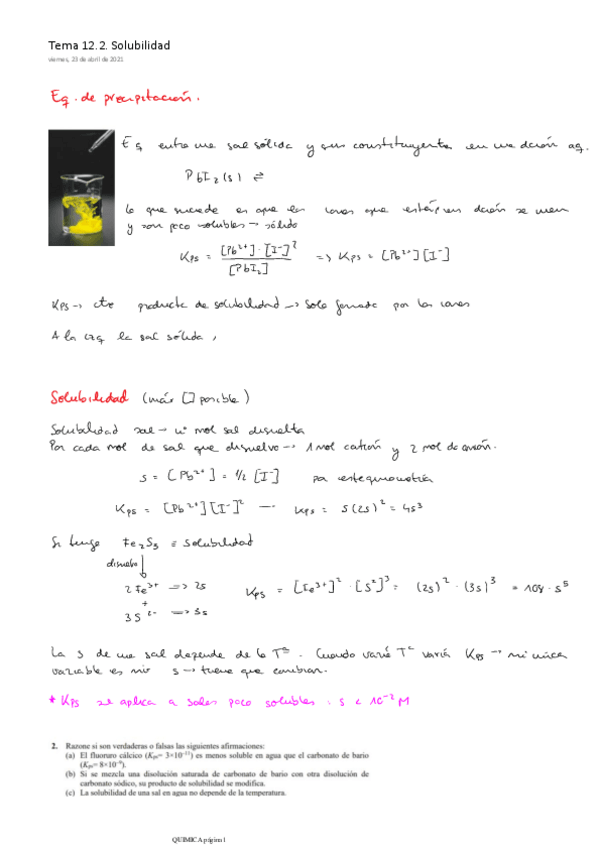 Tema 12.2. Solubilidad
viernes, 23 de abril de 2021
Eq. de precipitación.
Eq entre una sal sólida y sus constituyentes en una dación aq.
PbI₂(s) ⇌
lo que sucede es que los iones que están en dación se unen
y son poco solubles → sólido
Kps = [Pb²⁺]·[I⁻]² / [PbI₂] => Kps = [Pb²⁺][I⁻]
Kps → cte producto de solubilidad → solo formada por los iones
A la izq la sal sólida,
Solubilidad (máx [] posible)
Solubilidad sal → nº mol sal disuelta
Por cada mol de sal que disuelvo → 1 mol catión y 2 mol de anión.
s = [Pb²⁺] = 1/2 [I⁻] por estequiometría
Kps = [Pb²⁺][I⁻]² — Kps = s(2s)² = 4s³
Si tengo Fe₂S₃ = solubilidad
disuelvo
2 Fe³⁺ => 2s
+
3 S²⁻ => 3s
Kps = [Fe³⁺]² · [S²]³ = (2s)² · (3s)³ = 108 · s⁵
La s de una sal depende de la Tª. Cuando varíe Tª varía Kps → mi única
variable es mi s → tiene que cambiar.
* Kps se aplica a sales poco solubles : s < 10⁻² M
2. Razone si son verdaderas o falsas las siguientes afirmaciones:
(a) El fluoruro cálcico (Kps= 3×10⁻¹¹) es menos soluble en agua que el carbonato de bario
(Kps= 8×10⁻⁹).
(b) Si se mezcla una disolución saturada de carbonato de bario con otra disolución de
carbonato sódico, su producto de solubilidad se modifica.
(c) La solubilidad de una sal en agua no depende de la temperatura.
QUIMICA página 1